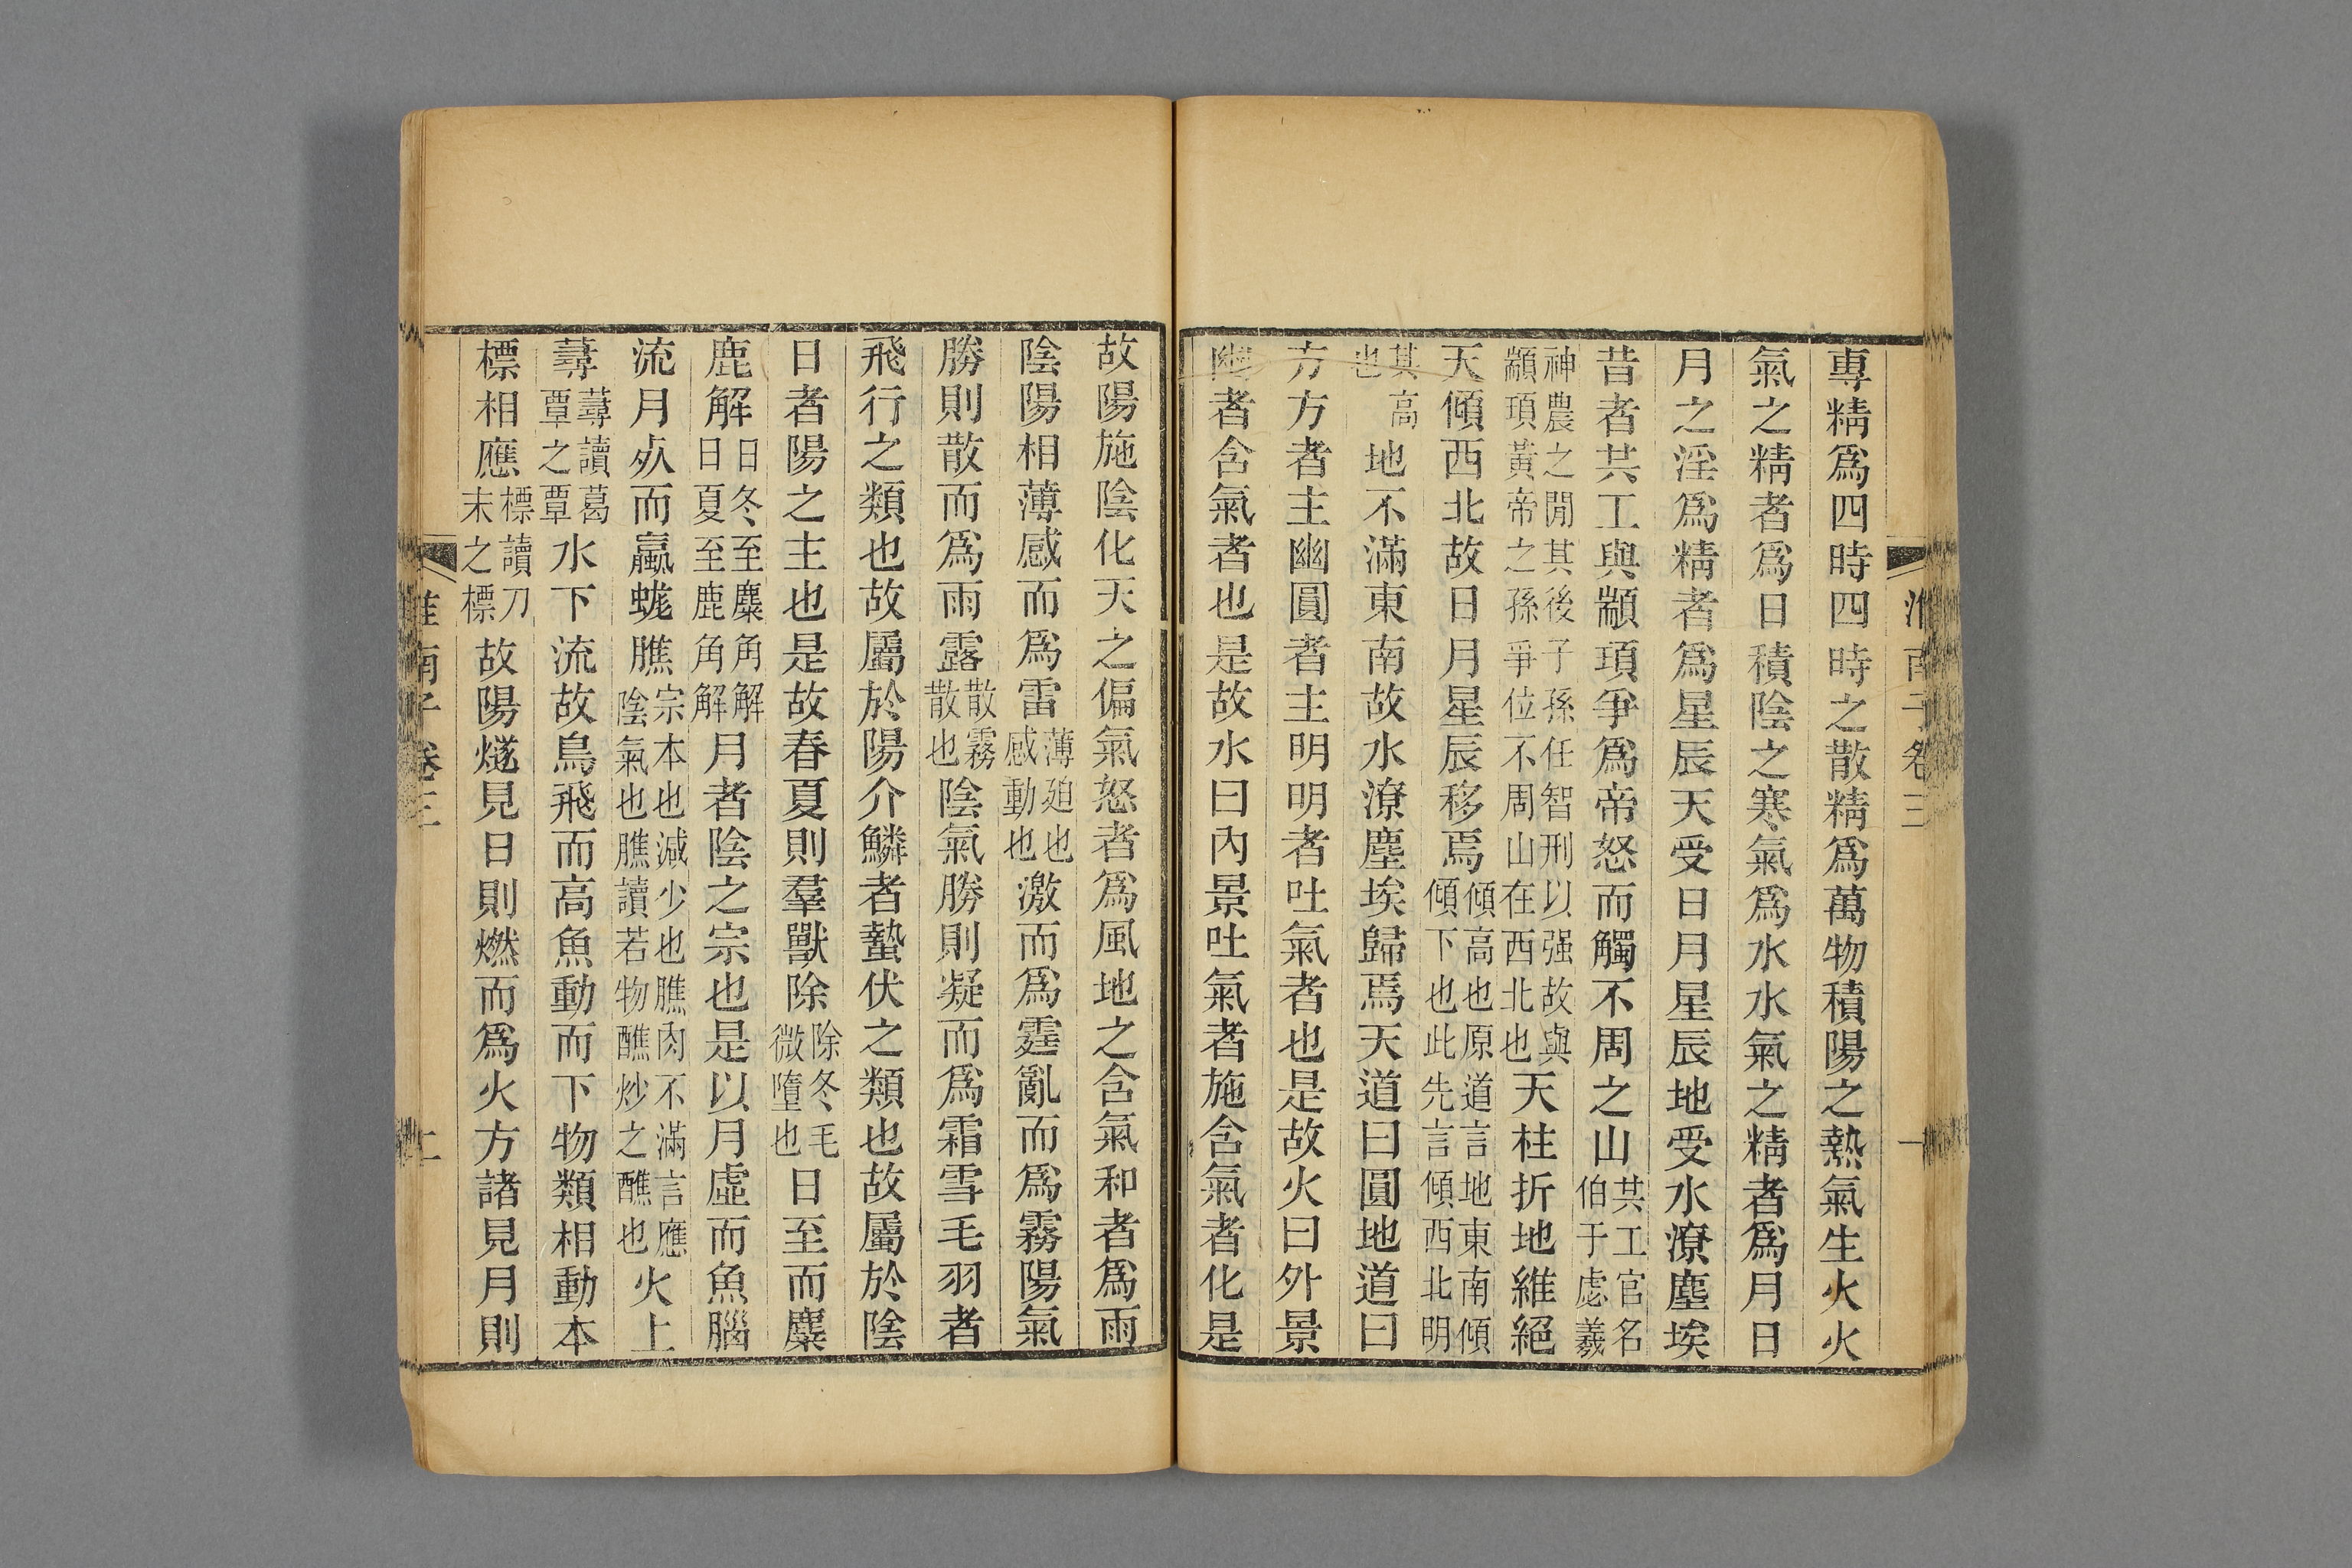 淮南子卷三 一
專精爲四時四時之散精爲萬物積陽之熱氣生火火
氣之精者爲日積陰之寒氣爲水水氣之精者爲月日
月之淫爲精者爲星辰天受日月星辰地受水潦塵埃
昔者共工與顓頊爭爲帝怒而觸不周之山共工官名伯于虙羲
神農之閒其後子孫任智刑以强故與顓頊黃帝之孫爭位不周山在西北也天柱折地維絕
天傾西北故日月星辰移焉傾高也原道言地東南傾傾下也此先言傾西北明
其高也地不滿東南故水潦塵埃歸焉天道曰圓地道曰
方方者主幽圓者主明明者吐氣者也是故火曰外景
幽者含氣者也是故水曰內景吐氣者施含氣者化是
故陽施陰化天之偏氣怒者爲風地之含氣和者爲雨
陰陽相薄感而爲雷薄廹也感動也激而爲霆亂而爲霧陽氣
勝則散而爲雨露散霧散也陰氣勝則凝而爲霜雪毛羽者
飛行之類也故屬於陽介鱗者蟄伏之類也故屬於陰
日者陽之主也是故春夏則羣獸除除冬毛微墮也日至而麋
鹿解日冬至麋角解日夏至鹿角解月者陰之宗也是以月虛而魚腦
流月㱩而蠃蛖膲宗本也減少也膲肉不滿言應陰氣也膲讀若物醮炒之醮也火上
蕁蕁讀葛覃之覃水下流故鳥飛而高魚動而下物類相動本
標相應標讀刀末之標故陽燧見日則燃而爲火方諸見月則
淮南子卷三 二